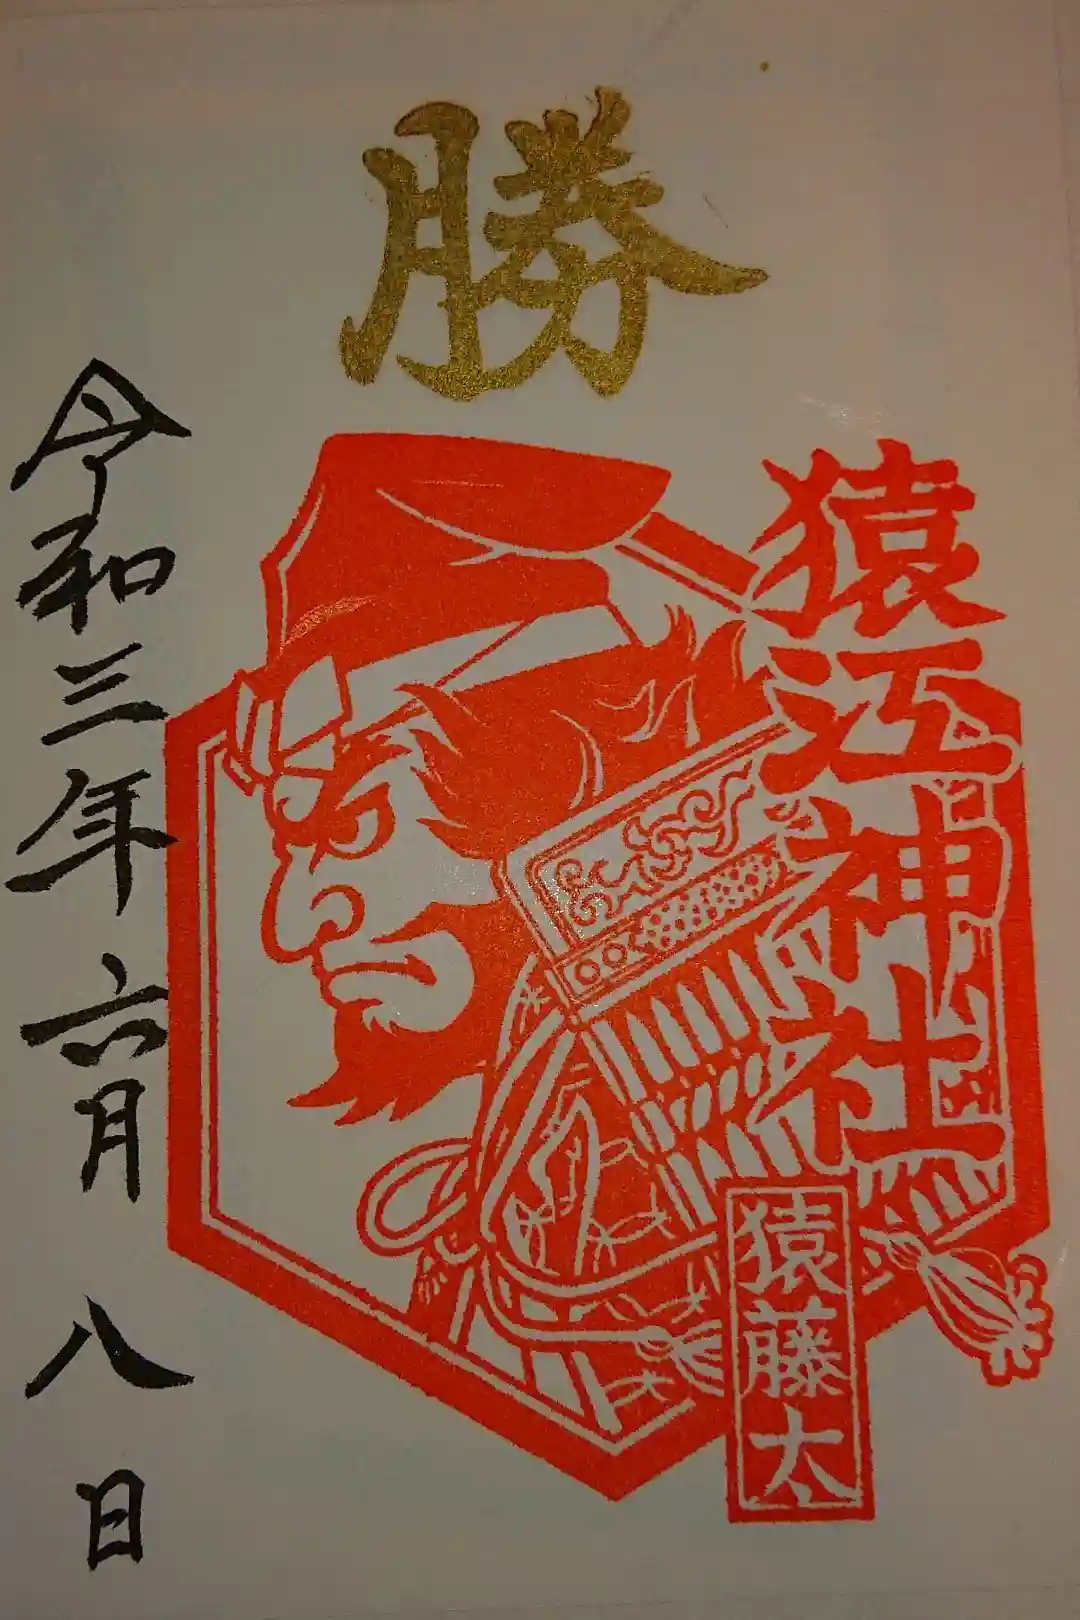 勝
猿江神社
猿藤太
令和三年六月八日